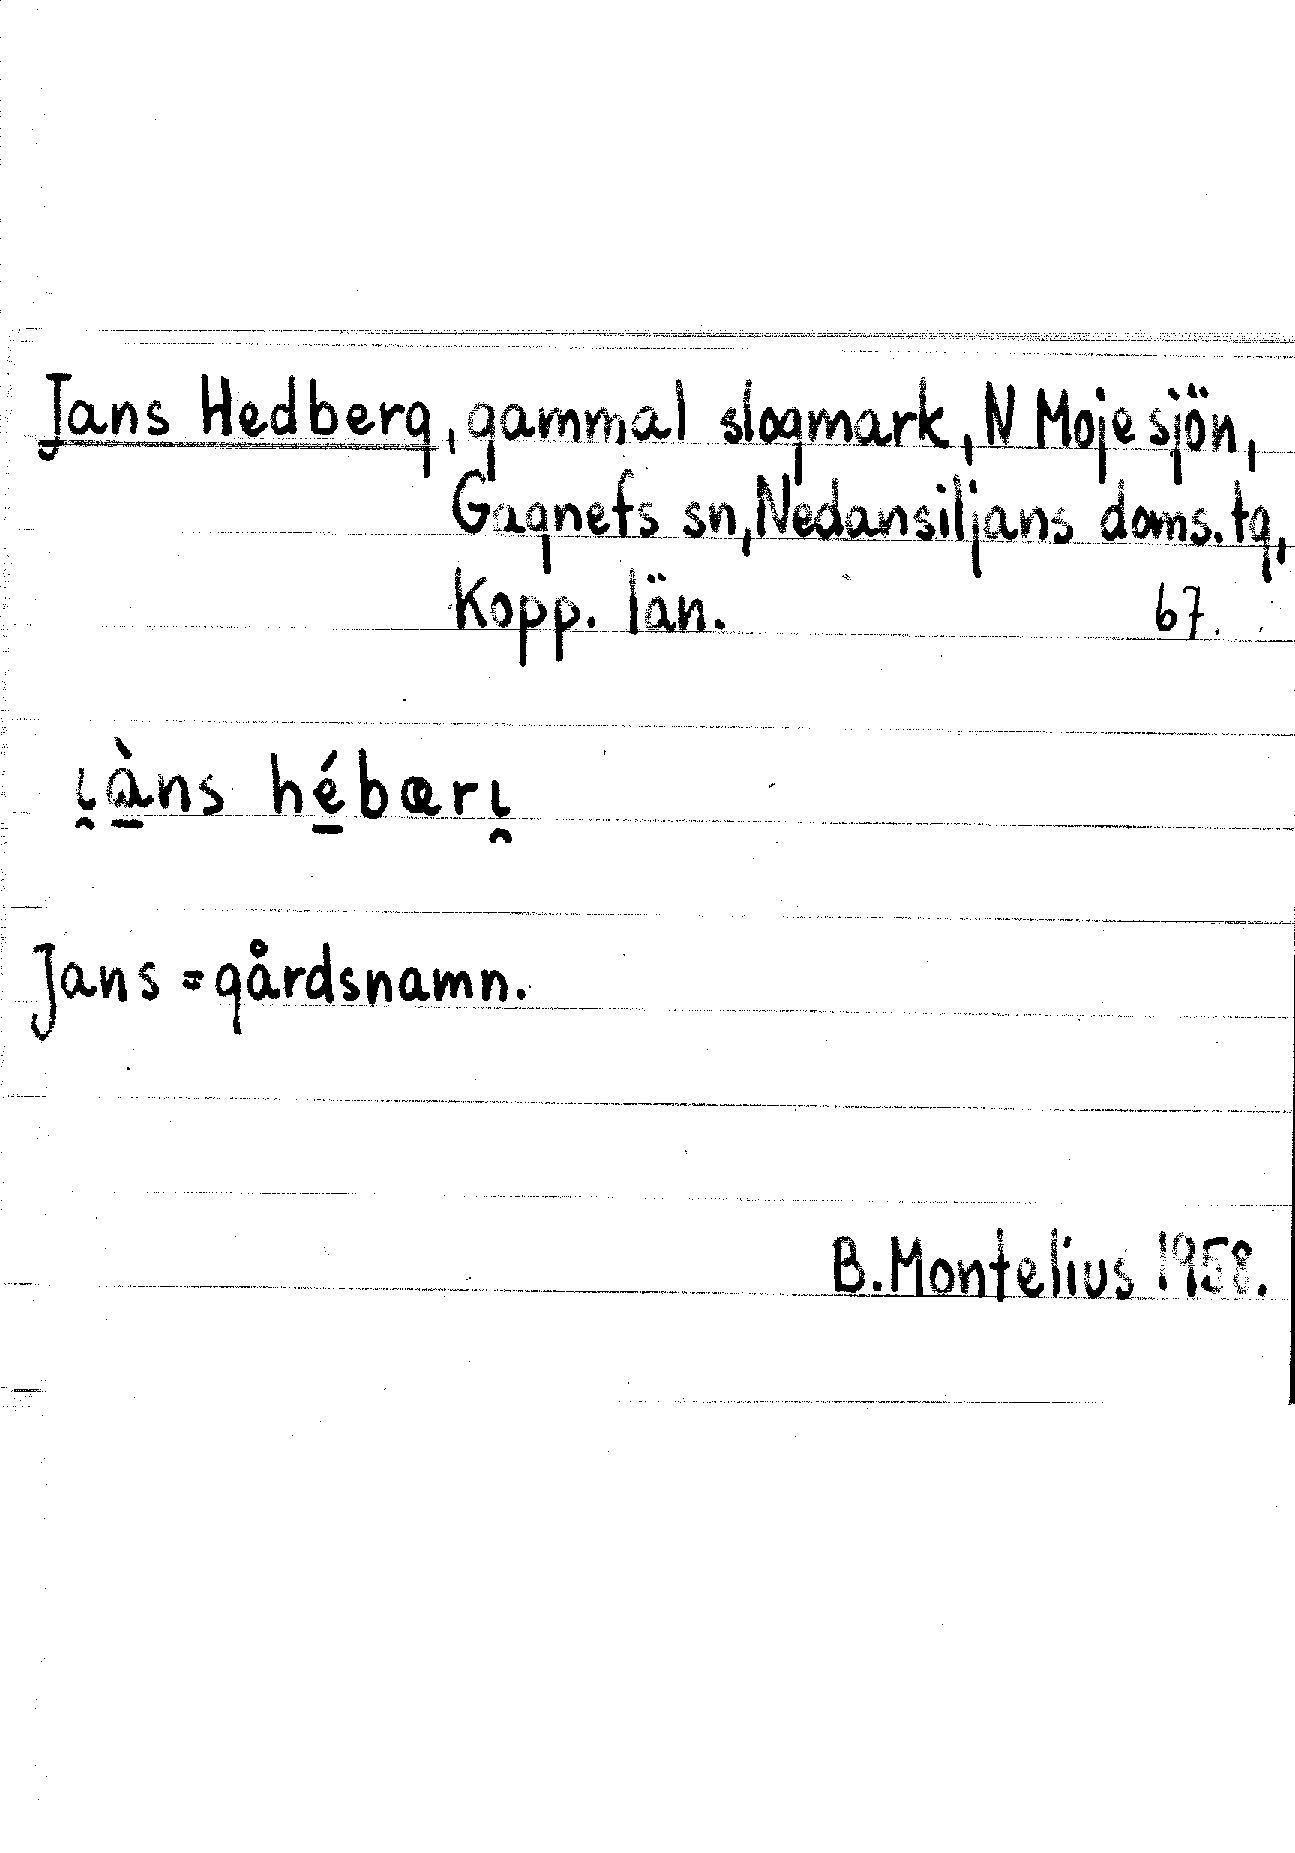 Jans Hedberg, gammal slogmark, N Mojesjön,
Gagnefs sn, Nedansiljans doms. tg,
Kopp. län. 67.
ɩ̯à̱ns hé̱bærɩ̯
Jans = gårdsnamn.
B. Montelius 1958.